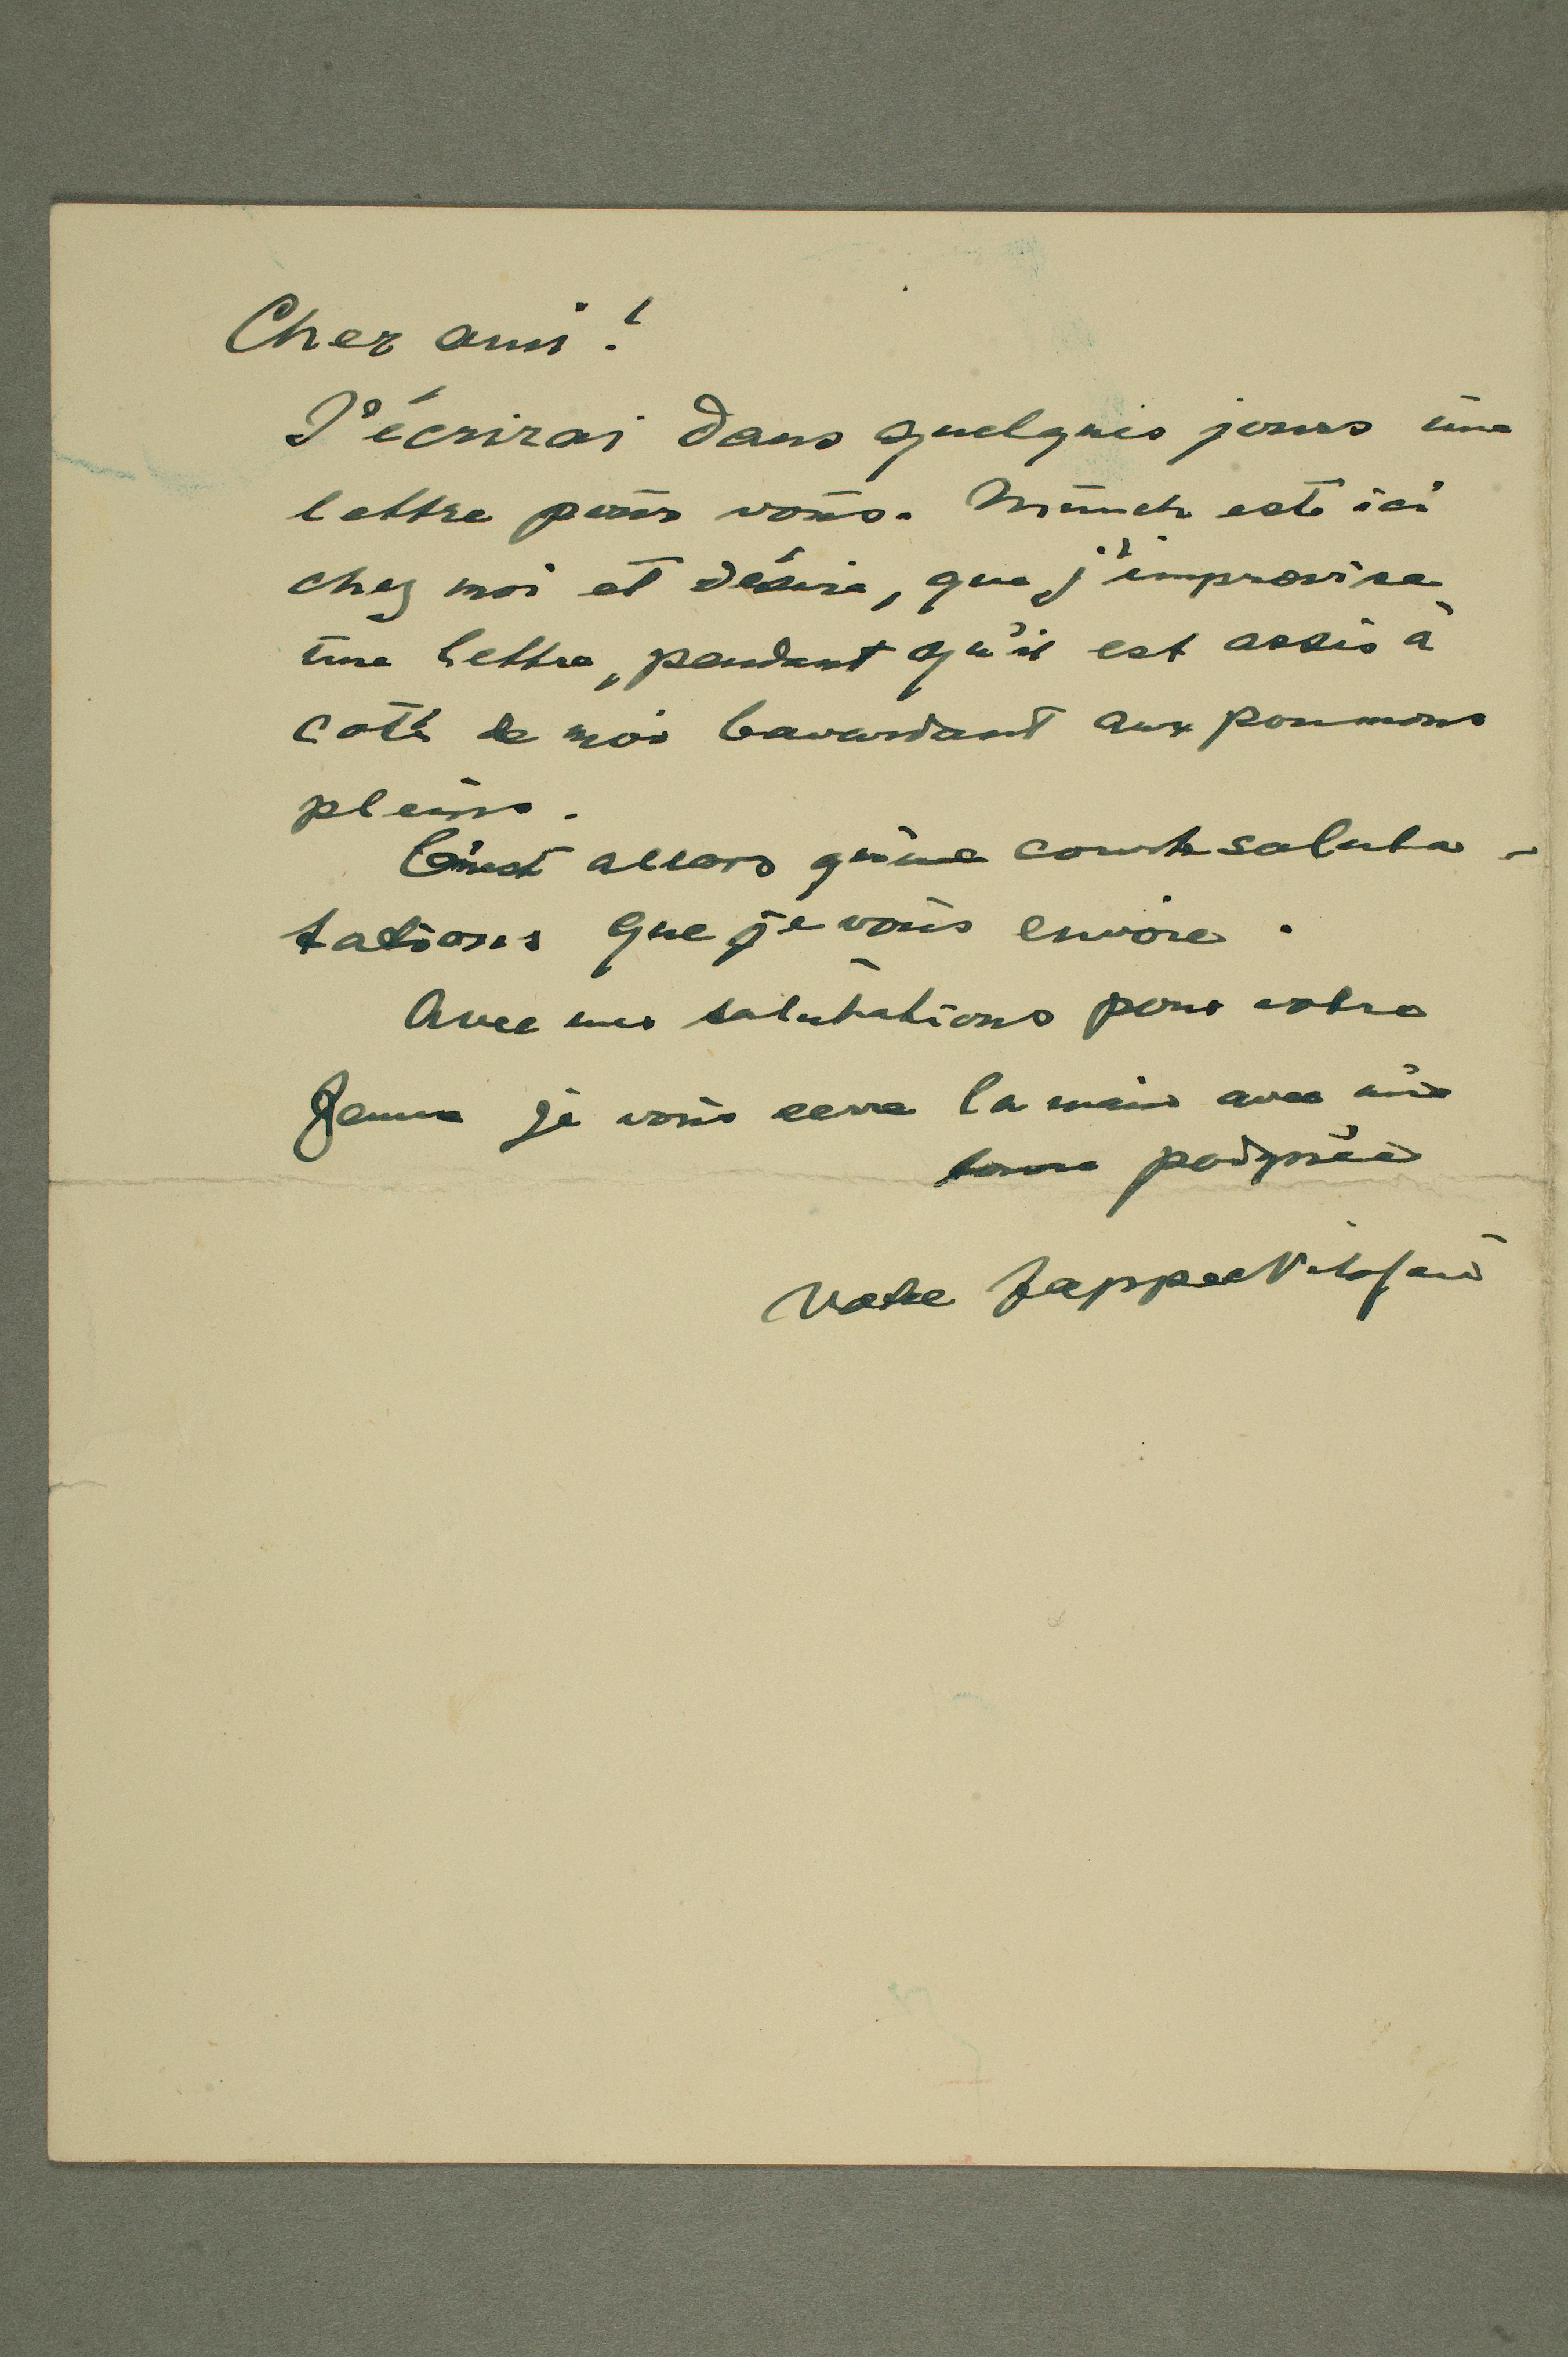 Cher ami!
J'écrirai dans quelques jours une
lettre pour vous. Munch est ici
chez moi et désire, que j'improvise
une lettre, pendant qu'il est assis à
coté de moi bavardant aux poumons
pleins.
C'nest allors qu'une courte saluta-
tations que je vous envoie.
Avec mes salutations pour votre
femme je vous serre la main avec une
bonne poignée
Votre Jappe Nilssen